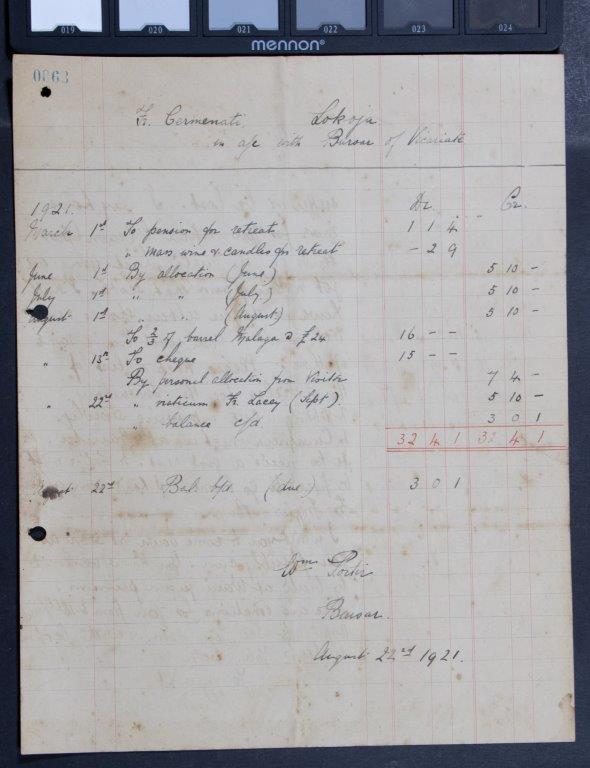 019 020 021 022 023 024
mennon®
0063
Fr. Cermenati, Lokoja
in a/c with Bursar of Vicariate
1921. Dr. Cr.
March 1st To pension for retreat 1 1 4
" mass wine & candles for retreat - 2 9
June 1st By allocation (June) 5 10 -
July 1st " " (July) 5 10 -
August 1st " (August) 5 10 -
To 2/3 of barrel Malaga @ £24 16 - -
" 13th To cheque 15 - -
By personal allocation from Visitor 7 4 -
" 22nd " viaticum Fr. Lacey (Sept) 5 10 -
" balance c/d 3 0 1
32 4 1 32 4 1
August 22nd Bal. b/d. (due) 3 0 1
Wm Porter
Bursar.
August 22nd 1921.